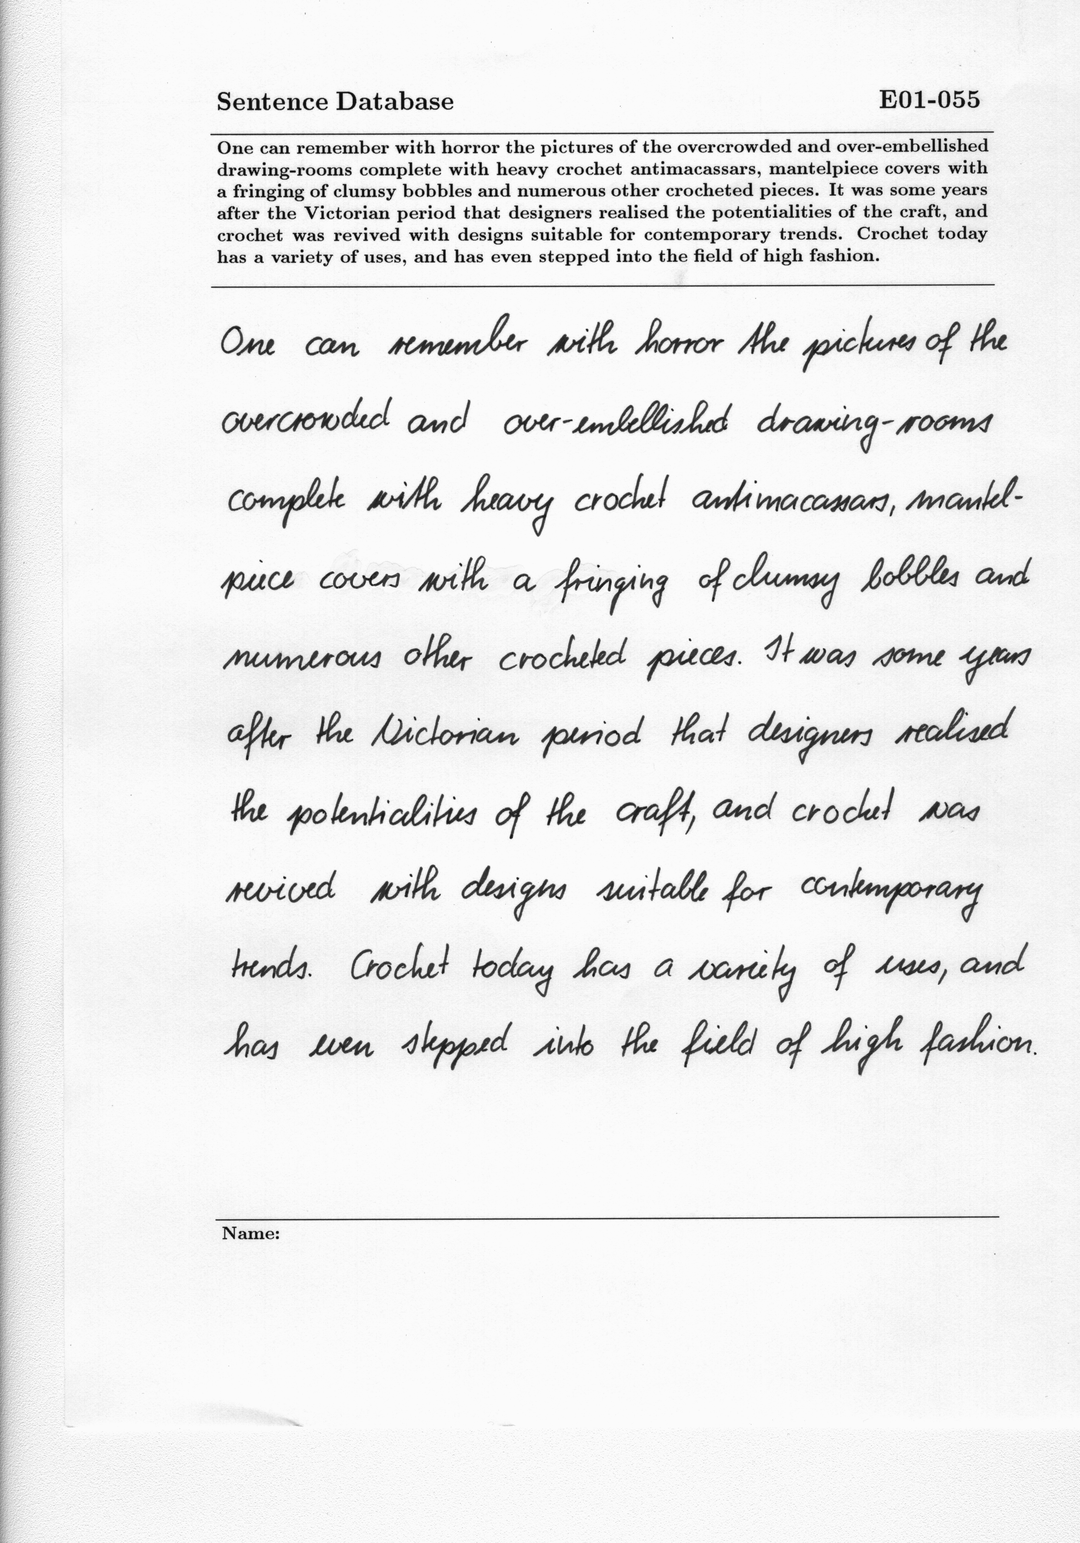 Sentence Database E01-055
One can remember with horror the pictures of the overcrowded and over-embellished
drawing-rooms complete with heavy crochet antimacassars, mantelpiece covers with
a fringing of clumsy bobbles and numerous other crocheted pieces. It was some years
after the Victorian period that designers realised the potentialities of the craft, and
crochet was revived with designs suitable for contemporary trends. Crochet today
has a variety of uses, and has even stepped into the field of high fashion.
One can remember with horror the pictures of the
overcrowded and over-embellished drawing-rooms
complete with heavy crochet antimacassars, mantel-
piece covers with a fringing of clumsy bobbles and
numerous other crocheted pieces. It was some years
after the Victorian period that designers realised
the potentialities of the craft, and crochet was
revived with designs suitable for contemporary
trends. Crochet today has a variety of uses, and
has even stepped into the field of high fashion.
Name: